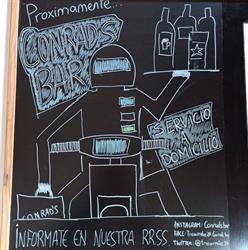 Proximamente...
CONRAD'S
BAR
SERVICIO
A
DOMICILIO
CONRAD'S
INFORMATE EN NUESTRA RRSS.
INSTAGRAM: Conradsbar
FACE:
TWITTER: